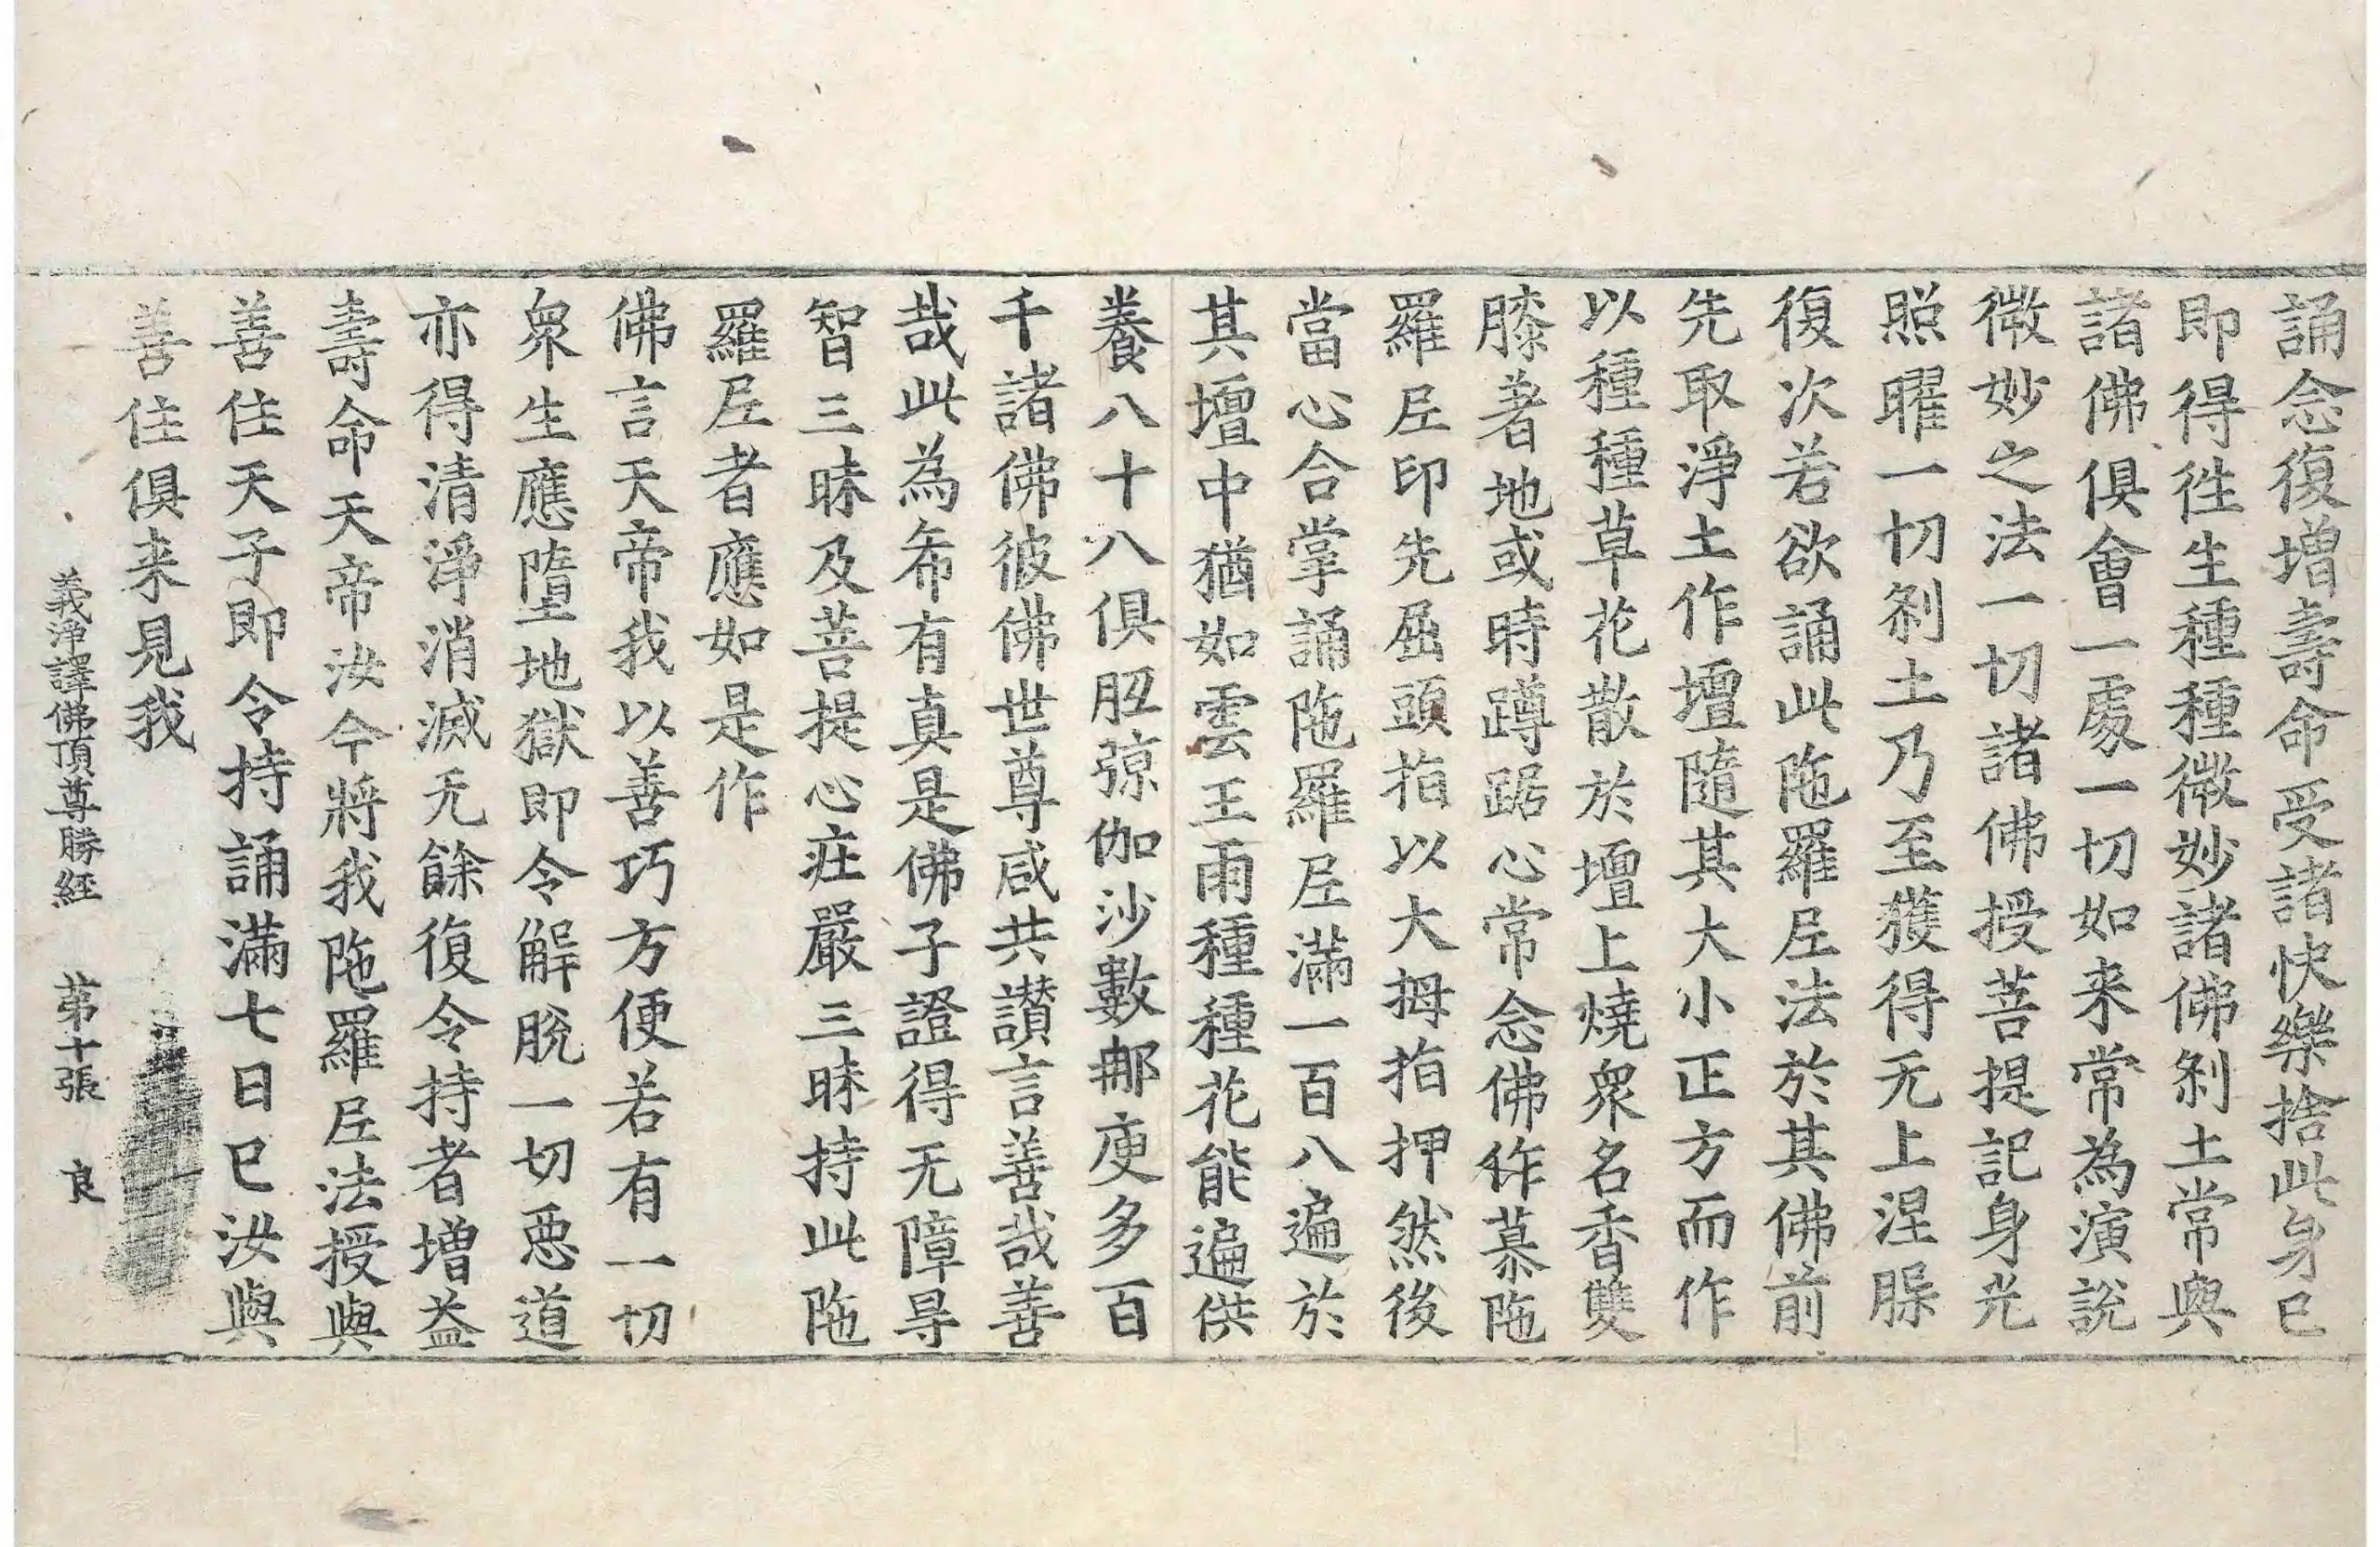 誦念復增壽命受諸快樂捨此身已
即得徃生種種微妙諸佛剎土常與
諸佛俱會一處一切如来常為演說
微妙之法一切諸佛授菩提記身光
照曜一切剎土乃至獲得无上涅槃
復次若欲誦此陁羅𡰱法於其佛前
先取淨土作壇隨其大小正方而作
以種種草花散於壇上燒衆名香雙
膝著地或時蹲踞心常念佛作慕陁
羅𡰱印先屈頭指以大拇指押然後
當心合掌誦陁羅𡰱滿一百八遍於
其壇中猶如雲王雨種種花能遍供
養八十八俱胝殑伽沙數那庾多百
千諸佛彼佛世尊咸共讃言善哉善
哉此為希有真是佛子證得无障㝵
智三昧及菩提心莊嚴三昧持此陁
羅𡰱者應如是作
佛言天帝我以善巧方便若有一切
衆生應墮地獄即令解脫一切惡道
亦得清淨消滅无餘復令持者增益
壽命天帝汝今將我陁羅𡰱法授與
善住天子即令持誦滿七日已汝與
善住俱来見我
義淨譯佛頂尊勝經 苐十張 良